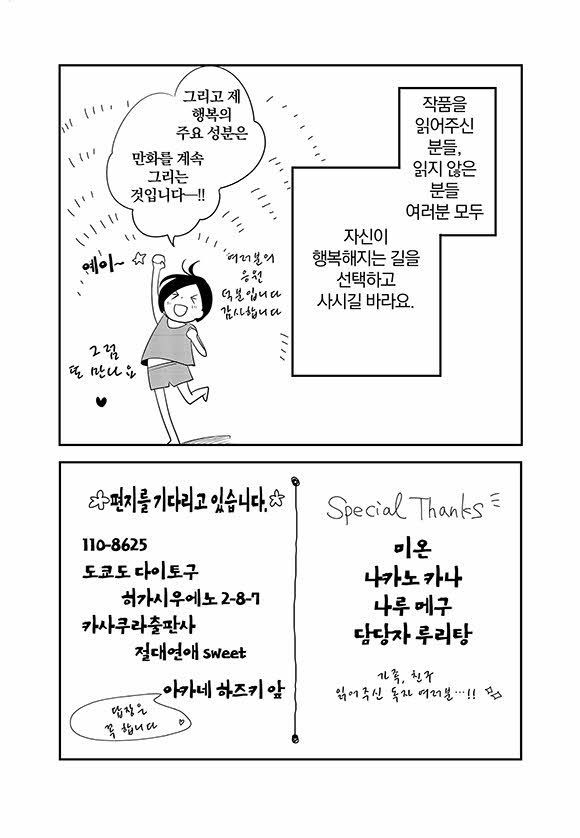 작품을
읽어주신
분들,
읽지 않은
분들
여러분 모두
자신이
행복해지는 길을
선택하고
사시길 바라요.
그리고 제
행복의
주요 성분은
만화를 계속
그리는
것입니다―!!
예이~ ☆
여러분의
응원
덕분입니다
감사합니다
그럼
또 만나요
♥
☆편지를 기다리고 있습니다.☆
110-8625
도쿄도 다이토구
허가시우에노 2-8-7
카사쿠라출판사
절대연애 sweet
아카네 하즈키 앞
답장은
꼭 합니다
♡
Special Thanks
미온
나카노 카나
나루 메구
담당자 루리탕
가족, 친구
읽어주신 독자 여러분…!!